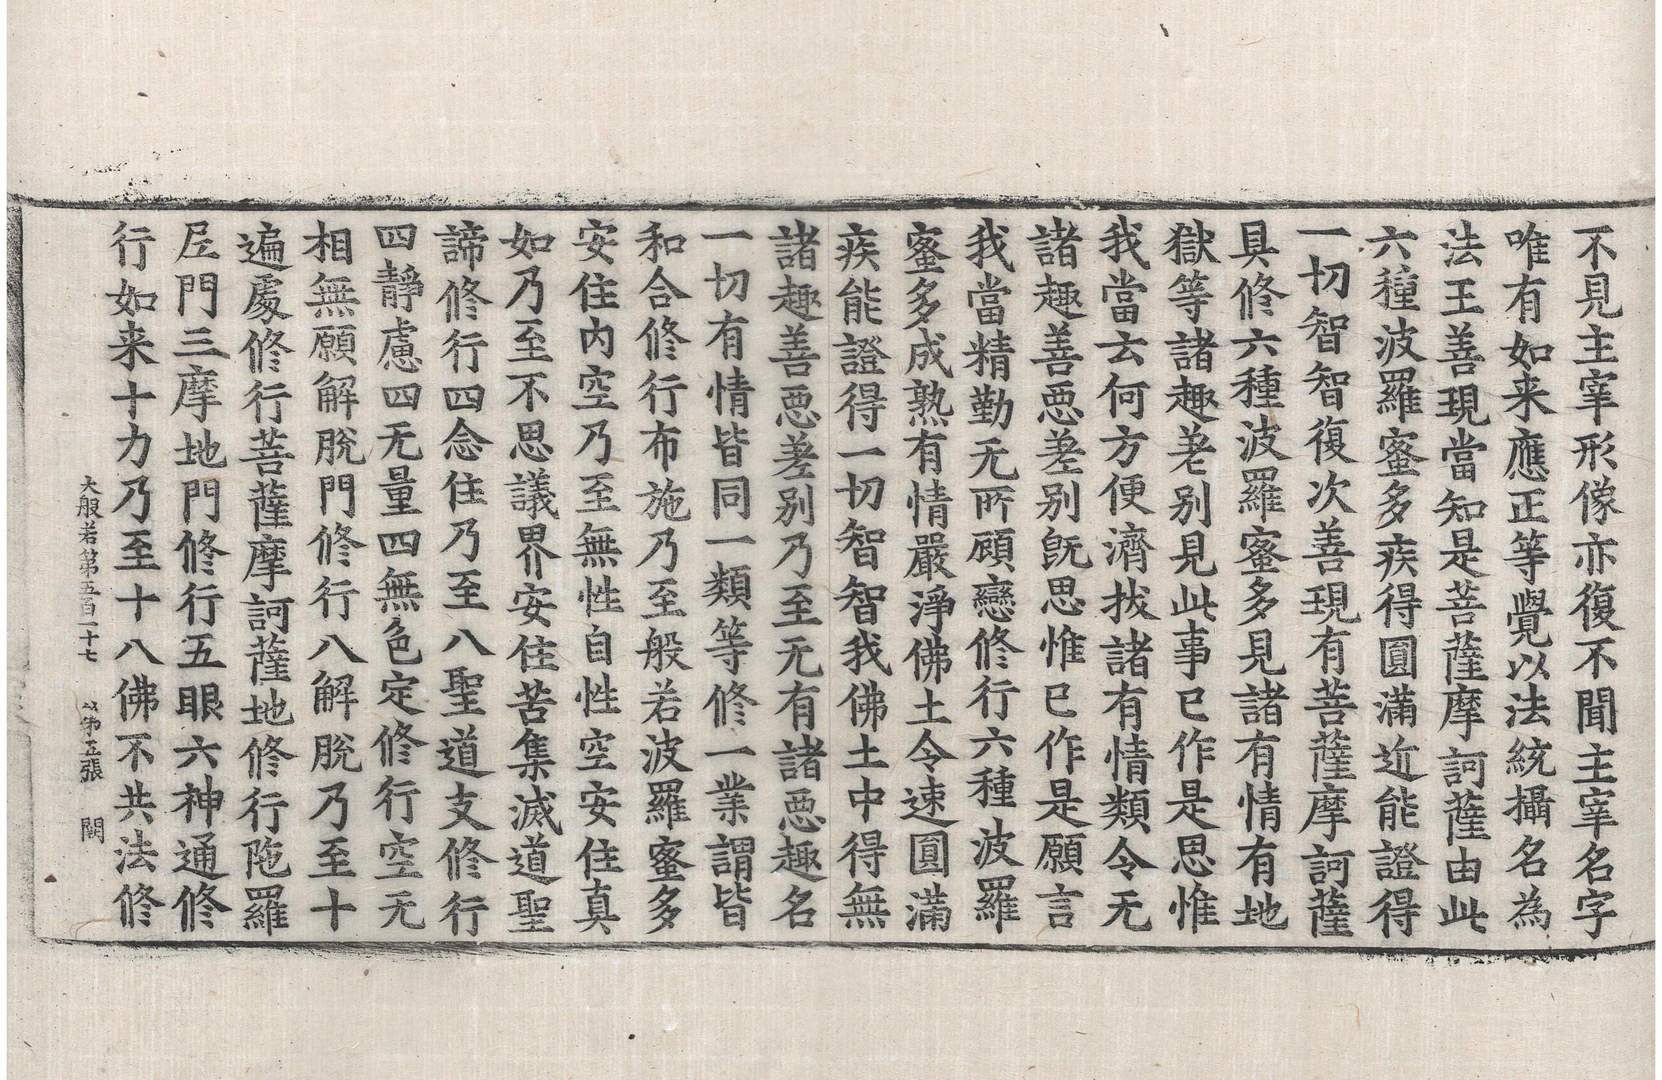 不見主宰形像亦復不聞主宰名字
唯有如来應正等覺以法統攝名為
法王善現當知是菩薩摩訶薩由此
六種波羅蜜多疾得圓滿近能證得
一切智智復次善現有菩薩摩訶薩
具修六種波羅蜜多見諸有情有地
獄等諸趣差别見此事已作是思惟
我當云何方便濟拔諸有情類令无
諸趣善惡差别既思惟已作是願言
我當精勤无所顧戀修行六種波羅
蜜多成熟有情嚴淨佛土令速圓滿
疾能證得一切智智我佛土中得無
諸趣善惡差别乃至无有諸惡趣名
一切有情皆同一類等修一業謂皆
和合修行布施乃至般若波羅蜜多
安住内空乃至無性自性空安住真
如乃至不思議界安住苦集滅道聖
諦修行四念住乃至八聖道支修行
四靜慮四无量四無色定修行空无
相無願解脫門修行八解脫乃至十
遍處修行菩薩摩訶薩地修行陁羅
尼門三摩地門修行五眼六神通修
行如来十力乃至十八佛不共法修
大般若第五百二十七 第五張 闕